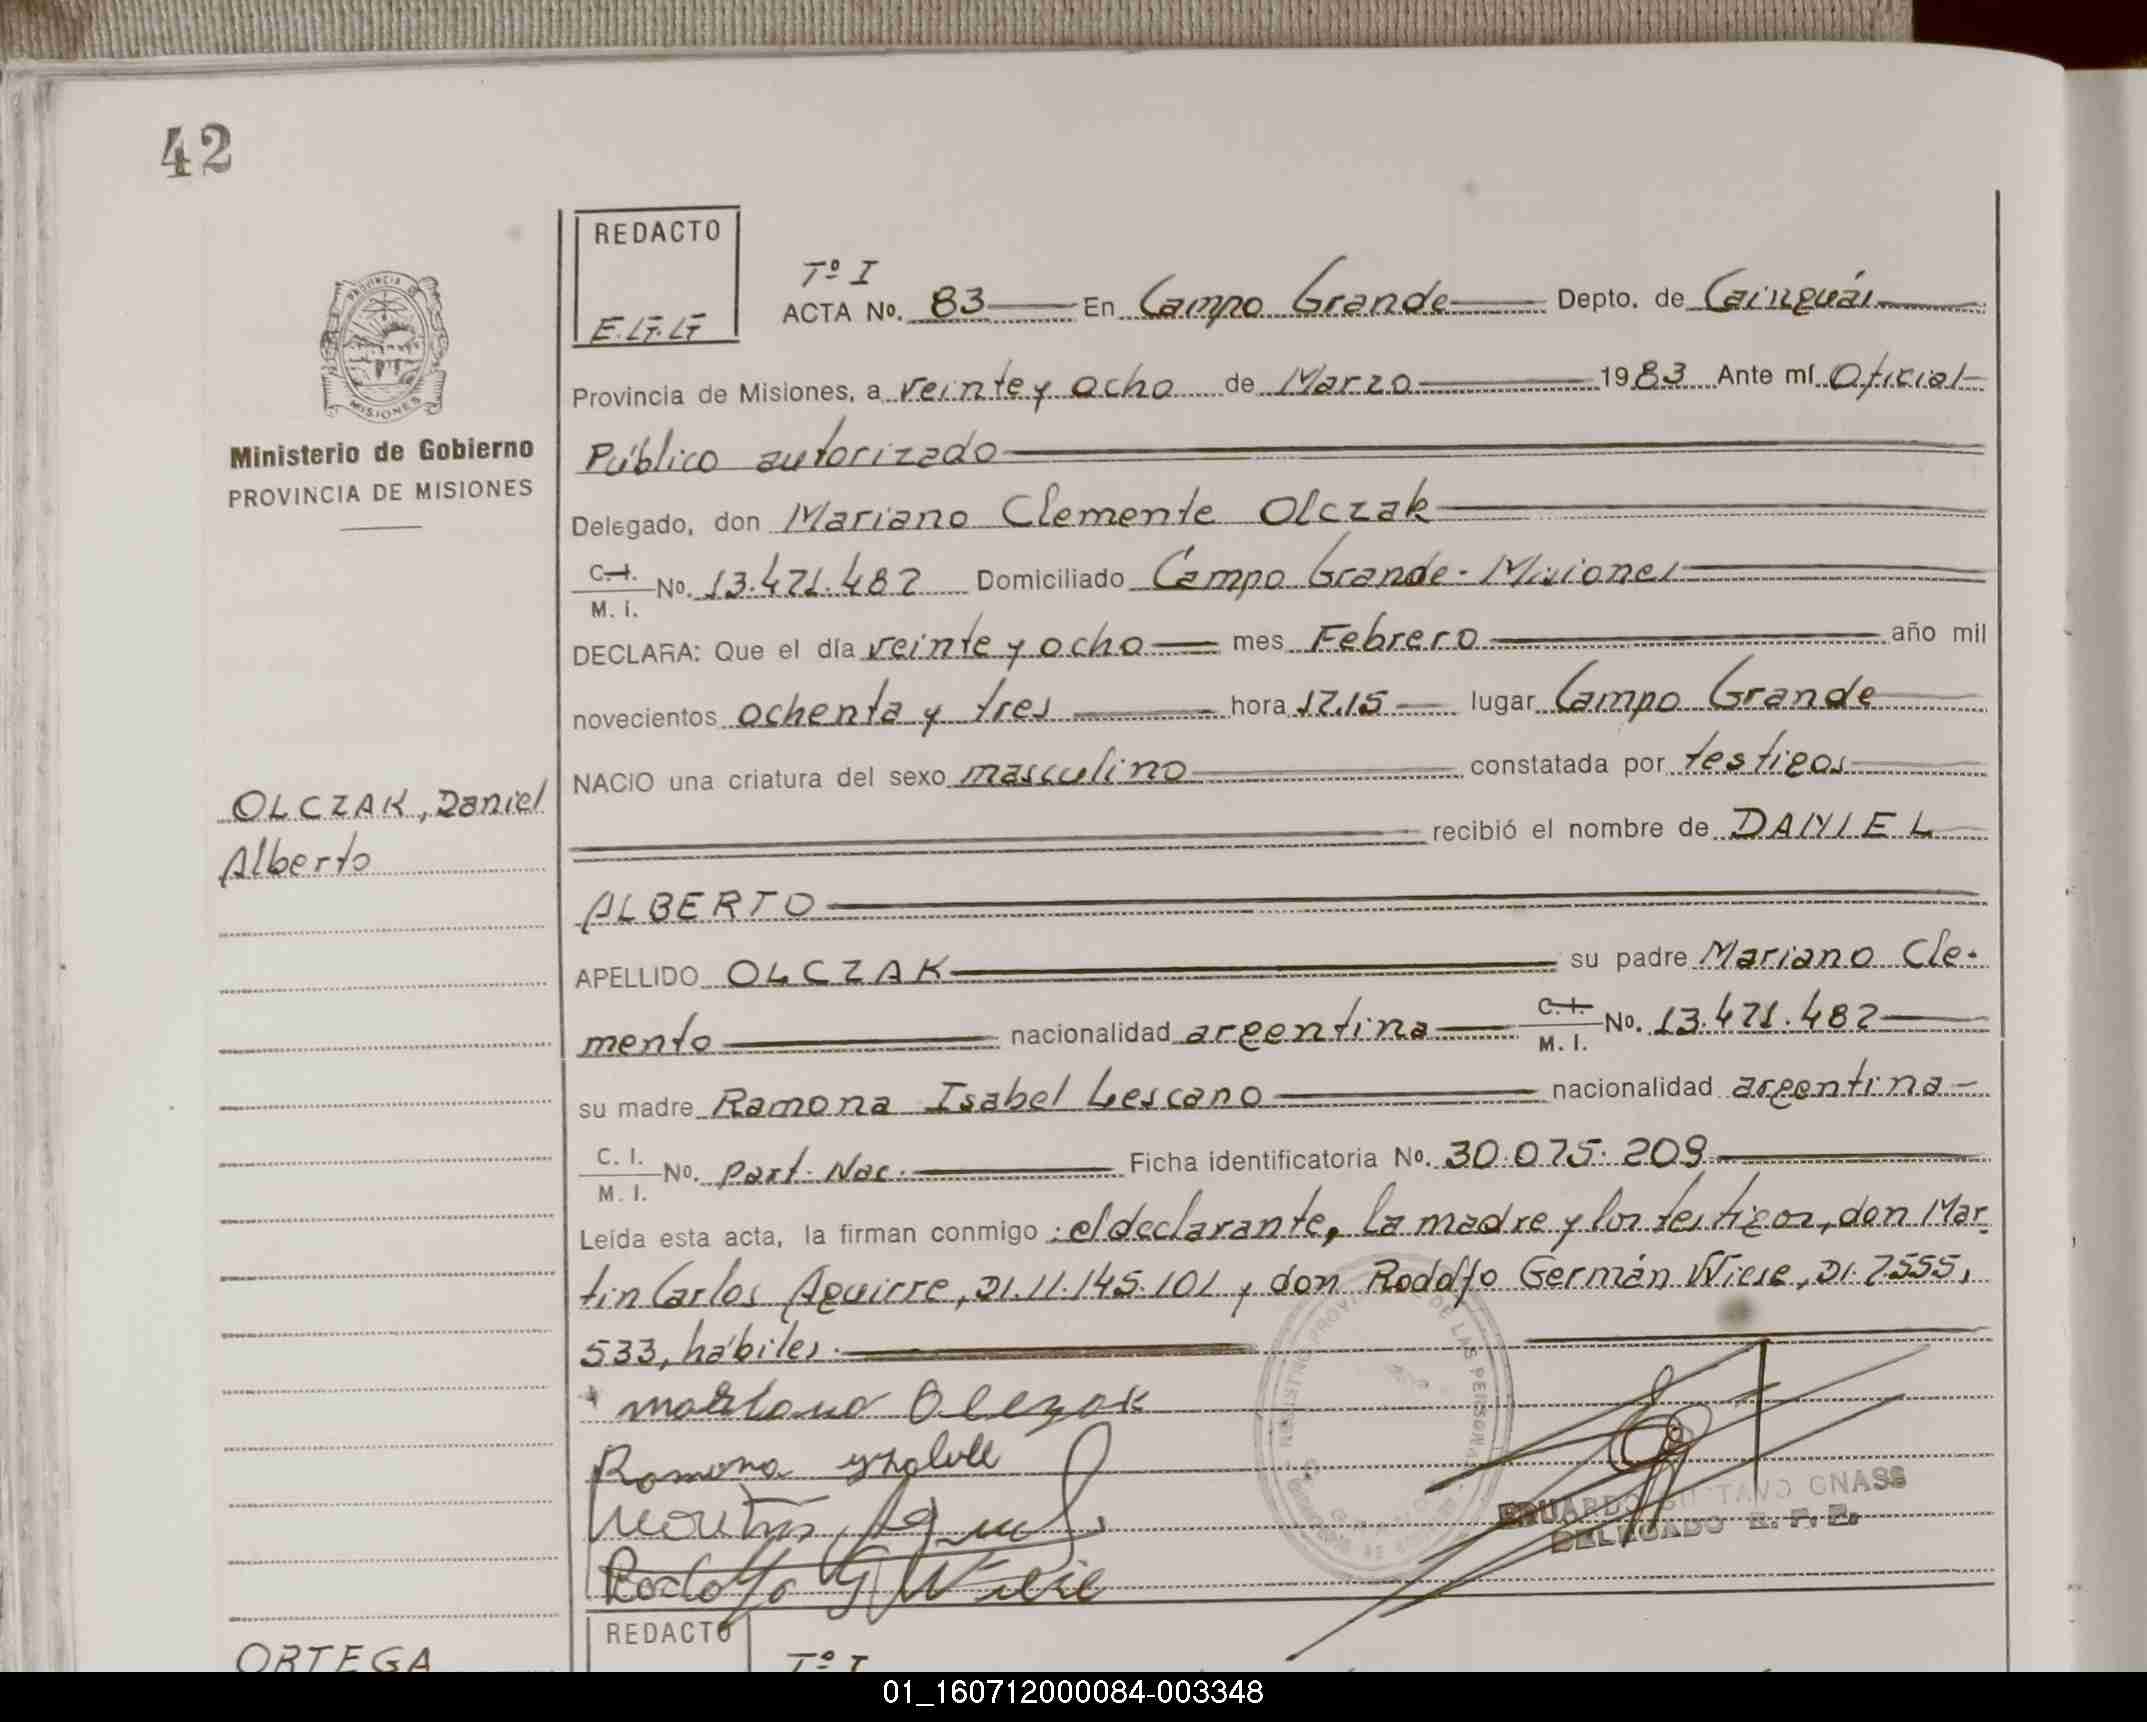 42
REDACTO
Tº I
ACTA No. 83 En Campo Grande Depto. de Cainguás
E.G.G
PROVINCIA DE
MISIONES
Provincia de Misiones, a veinte y ocho de Marzo 1983 Ante mí Oficial
Ministerio de Gobierno
PROVINCIA DE MISIONES
Público autorizado
Delegado, don Mariano Clemente Olczak
C.I. M. i. No. 13.471.482 Domiciliado Campo Grande - Misiones
DECLARA: Que el día veinte y ocho mes Febrero año mil
novecientos ochenta y tres hora 17.15 lugar Campo Grande
NACIO una criatura del sexo masculino constatada por testigos
OLCZAK, Daniel
Alberto
recibió el nombre de DANIEL
ALBERTO
APELLIDO OLCZAK su padre Mariano Cle-
mento nacionalidad argentina C.I. M. I. No. 13.471.482
su madre Ramona Isabel Lescano nacionalidad argentina
C. I. M. I. No. Part. Nac. Ficha identificatoria No. 30.075.209
Leída esta acta, la firman conmigo : el declarante, la madre y los testigos, don Mar-
tin Carlos Aguirre, DI. 11.145.101 y don Rodolfo Germán Wiese, DI. 7.555.
533, hábiles.
Mariano Olczak
Ramona
Rodolfo G Wiese
REGISTRO PROVINCIAL DE LAS PERSONAS
EDUARDO GUSTAVO GNASS
DELEGADO R. P. P.
REDACTO
ORTEGA
Tº I
01_160712000084-003348